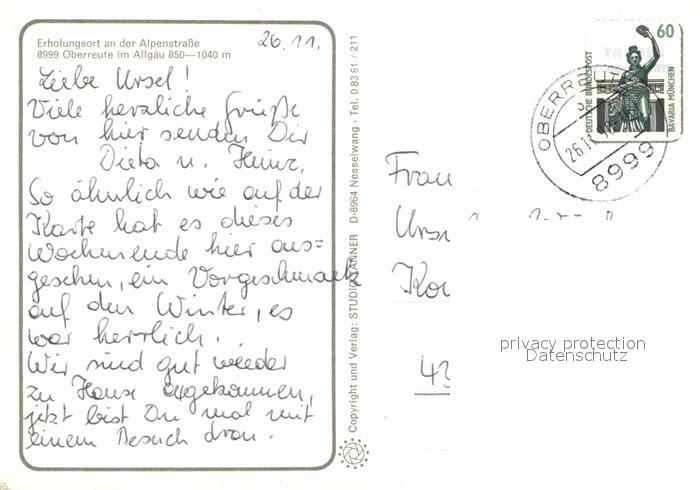 Erholungsort an der Alpenstraße
8999 Oberreute im Allgäu 850—1040 m
26.11.
Liebe Ursel!
Viele herzliche Grüße
von hier senden Dir
Dieta u. Heinz.
So ähnlich wie auf der
Karte hat es dieses
Wochenende hier aus=
gesehen, ein Vorgeschmack
auf den Winter, es
war herrlich.
Wir sind gut wieder
zu Hause angekommen,
jetzt bist Du mal mit
einem Besuch dran.
Copyright und Verlag: STUDIO TANNER D-8964 Nesselwang · Tel. 0 83 61 / 211
60
DEUTSCHE BUNDESPOST
BAVARIA MÜNCHEN
OBERREUTE
26.11.
8999
Frau
43
privacy protection
Datenschutz